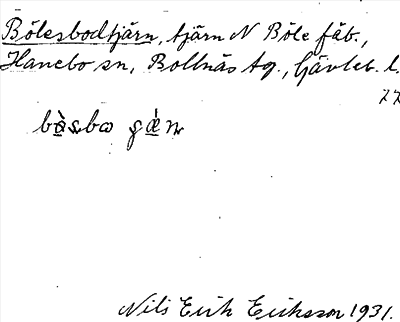 Bölesbodtjärn, tjärn N Böle fäb.,
Hanebo sn, Bollnäs tg., Gävleb. l.
77
Nils Erik Eriksson 1931.